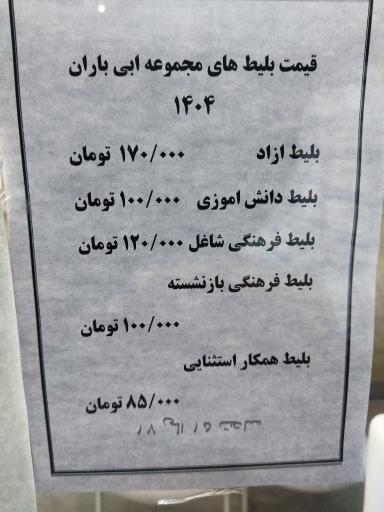 قیمت بلیط های مجموعه ابی باران
۱۴۰۴
بلیط ازاد ۱۷۰/۰۰۰ تومان
بلیط دانش اموزی ۱۰۰/۰۰۰ تومان
بلیط فرهنگی شاغل ۱۲۰/۰۰۰ تومان
بلیط فرهنگی بازنشسته
۱۰۰/۰۰۰ تومان
بلیط همکار استثنایی
۸۵/۰۰۰ تومان